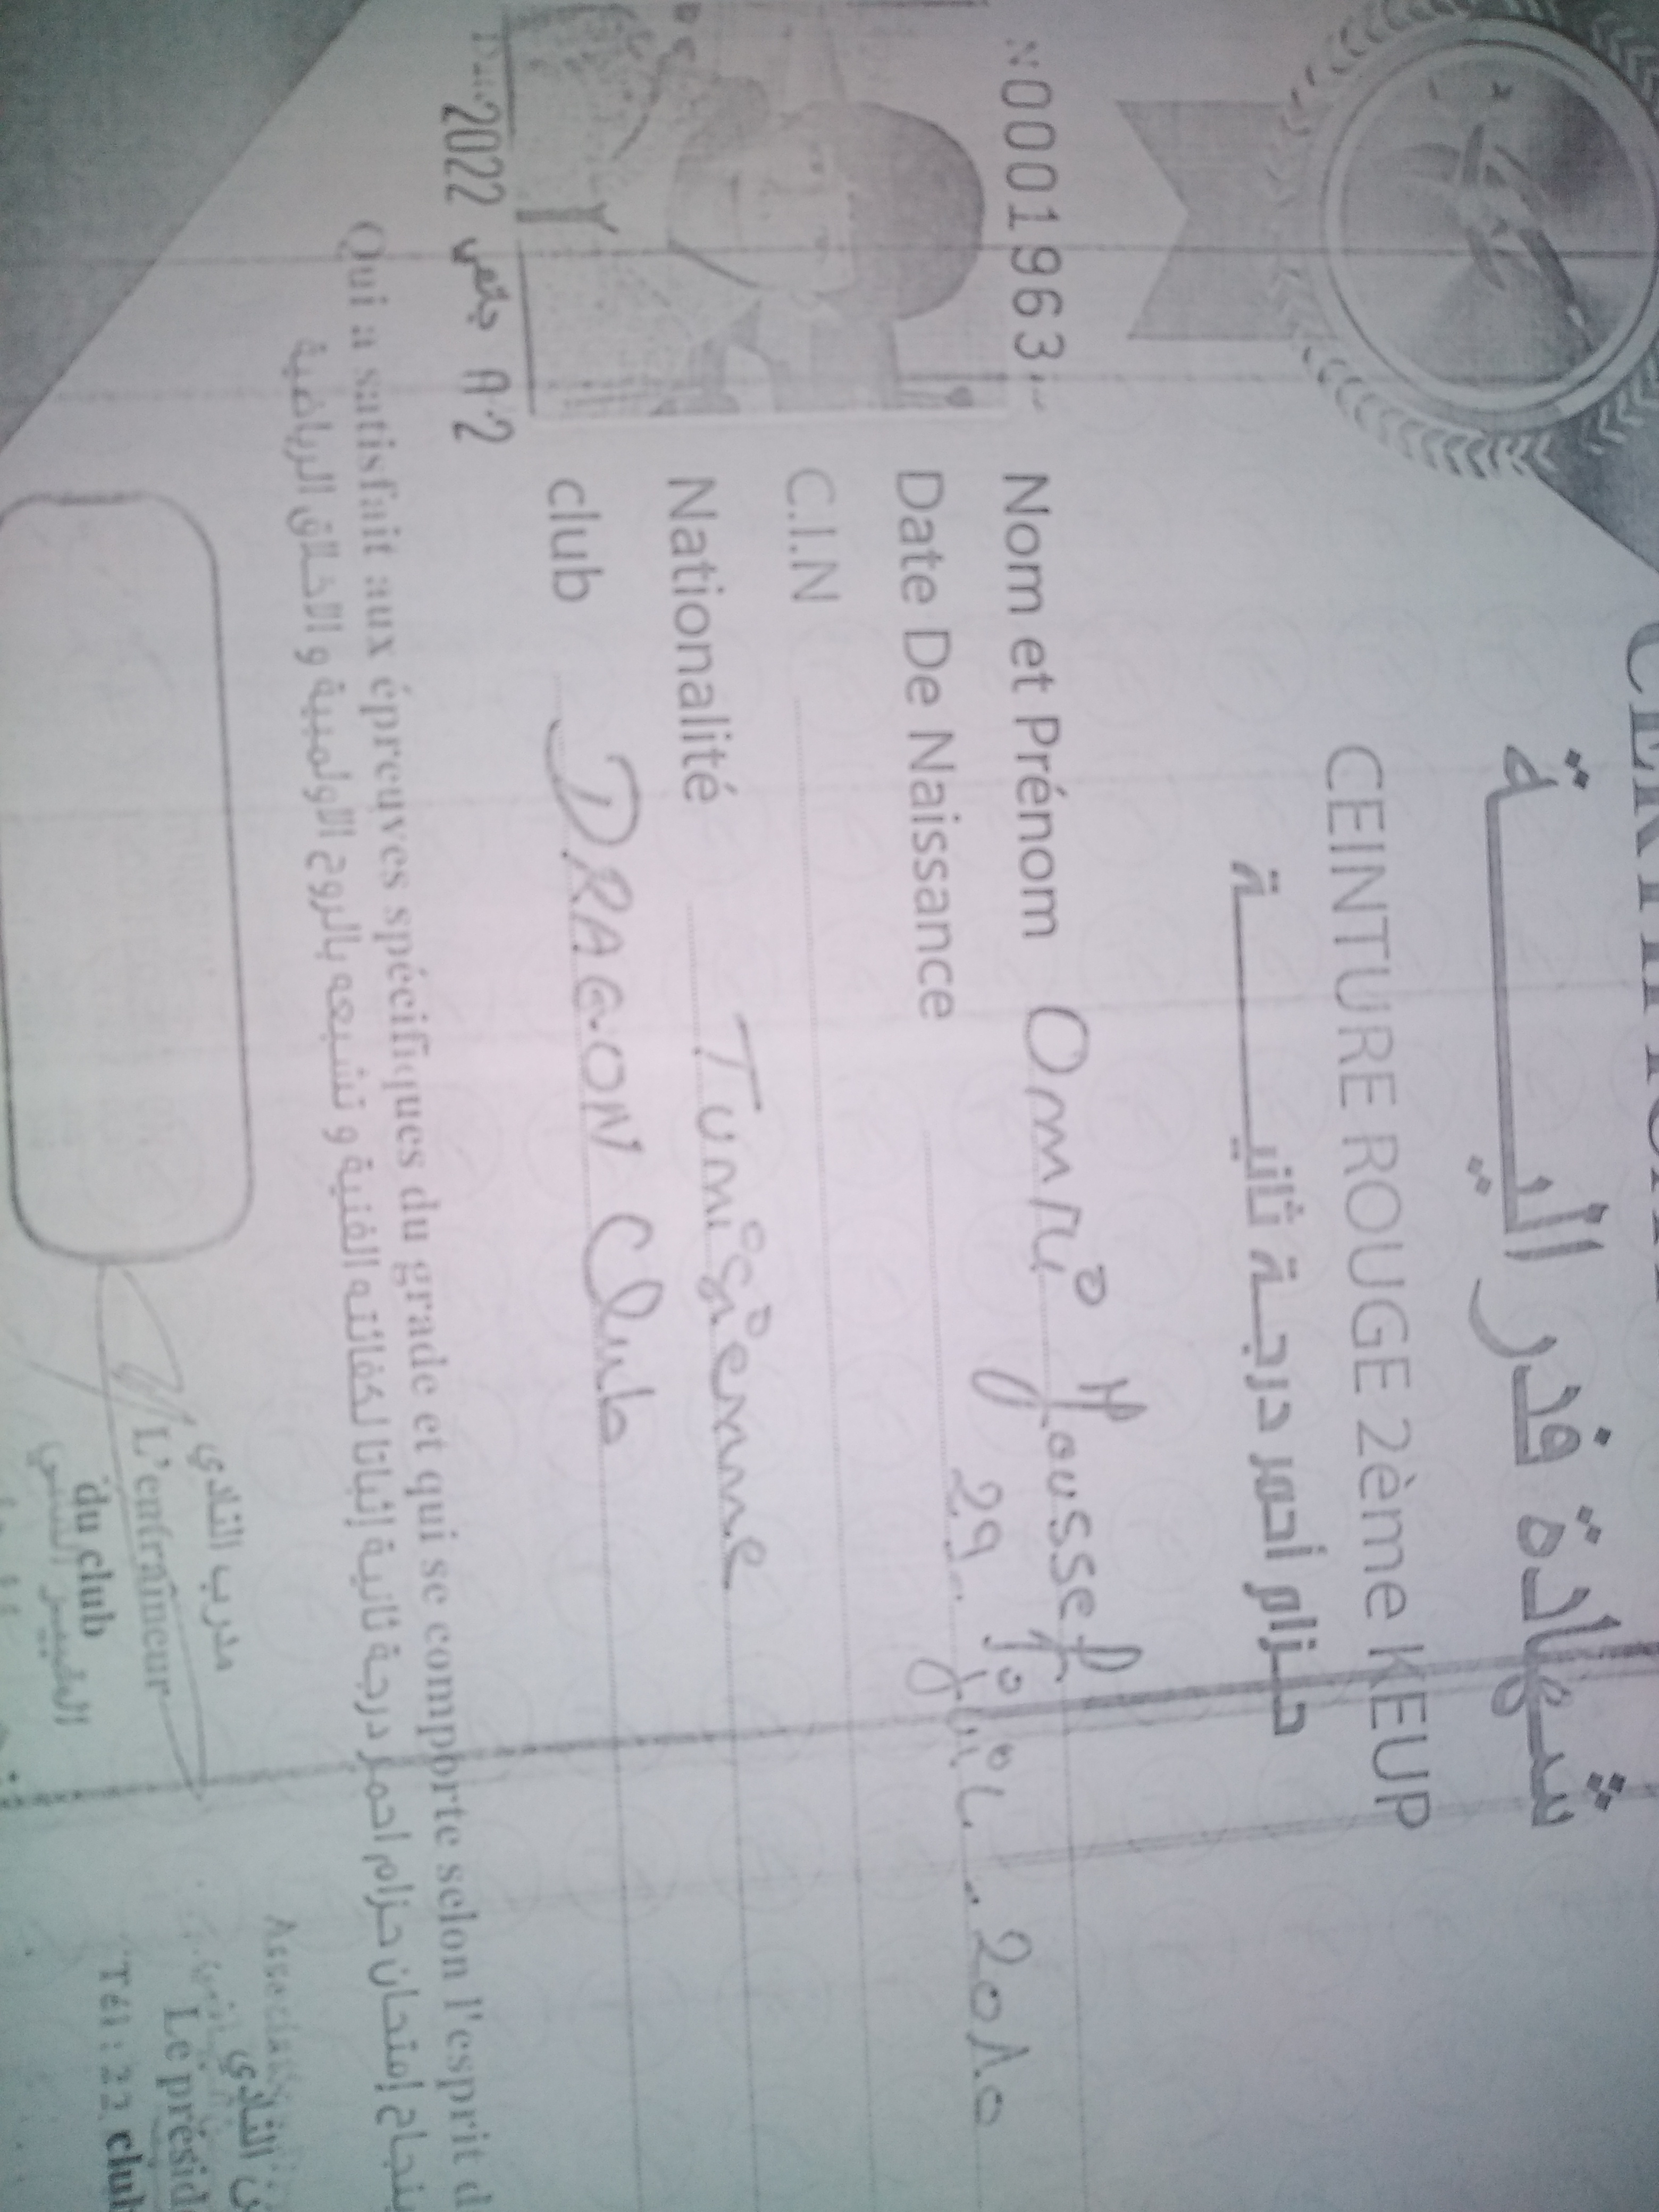 شهادة قدراليـــــــة
CEINTURE ROUGE 2ème KEUP
حزام أحمر درجة ثانيـــــــة
N:0001963
Nom et Prénom Omri Youssef
Date De Naissance 29. juillet. 2010
C.I.N
Nationalité Tunisienne
club DRAGON Club
2022 جانفي A.2
Qui a satisfait aux épreuves spécifiques du grade et qui se comporte selon l'esprit
بنجاح إمتحان حزام احمر درجة ثانية إثباتا لكفائته الفنية و تشبعه بالروح الاولمبية و الاخلاق الرياضية
مدرب النادي
L'entraîneur
du club
النادي
Le présid
Tél : 22 club